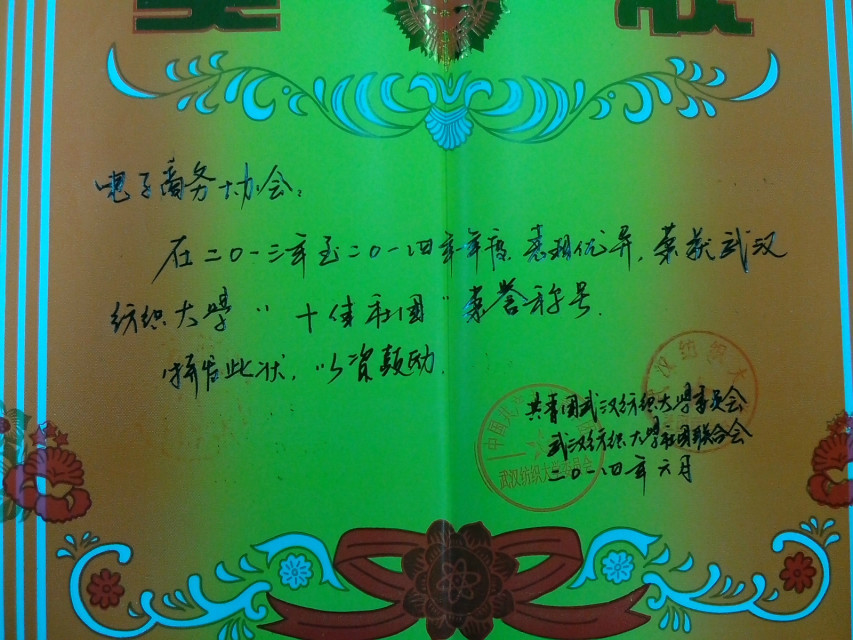 奖状
电子商务协会：
在二〇一三年至二〇一四年年度表现优异，荣获武汉
纺织大学“十佳社团”荣誉称号.
特发此状，以资鼓励.
共青团武汉纺织大学委员会
武汉纺织大学社团联合会
二〇一四年六月
武汉纺织大学委员会